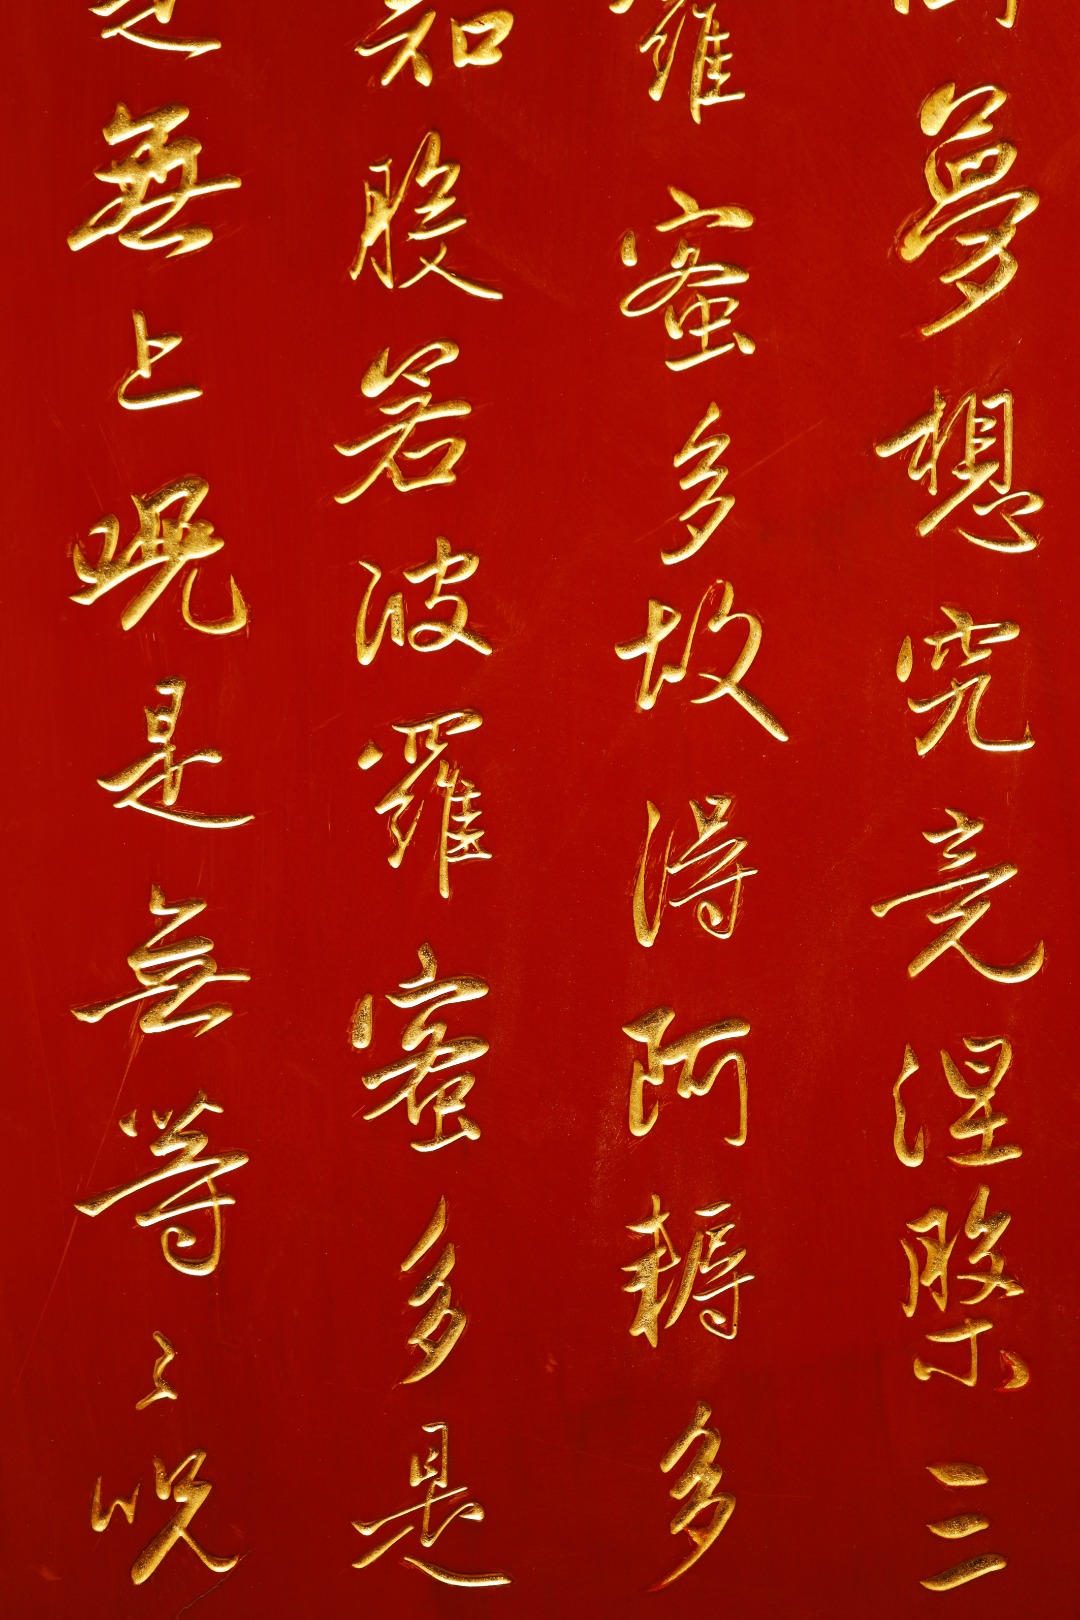 夢想究竟涅槃三
羅蜜多故得阿耨多
知般若波羅蜜多是
是無上呪是無等々呪